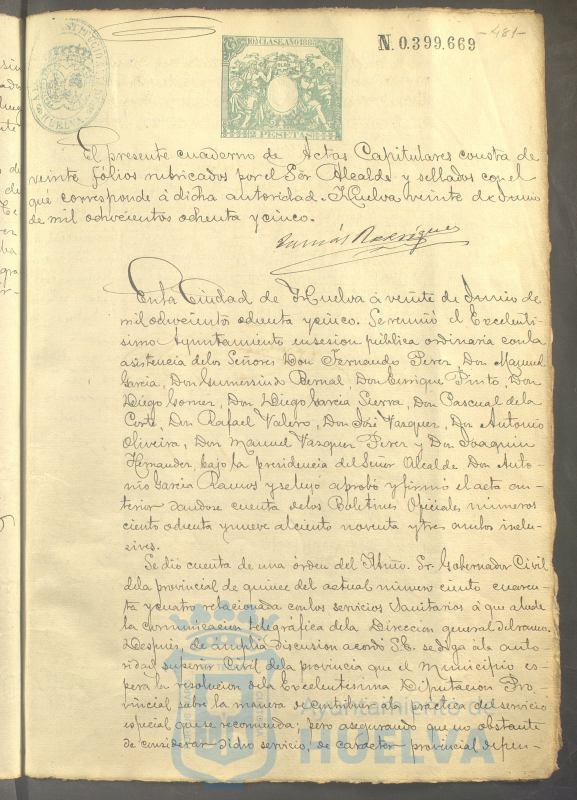 -481-
N. 0.399.669
10ª CLASE. AÑO 1885
2 PESETAS
HUELVA
El presente cuaderno de Actas Capitulares consta de
veinte fólios rubricados por el Sor Alcalde y sellados con el
qué corresponde á dicha autoridad. Huelva veinte de Junio
de mil ochocientos ochenta y cinco.
Rodriguez
En la Ciudad de Huelva á veinte de Junio de
mil ochocientos ochenta y cinco. Se reunió el Excelenti-
simo Ayuntamiento en sesion pública ordinaria con la
asistencia de los Señores Don Fernando Perez Don Manuel
Garcia, Don Gumersindo Bernal Don Enrique Pinto, Don
Diego Gomez, Don Diego Garcia Sierra, Don Pascual de la
Corte, Don Rafael Valero, Don José Vazquez, Don Antonio
Oliveira, Don Manuel Vazquez Perez y Don Joaquin
Hernandez, bajo la presidencia del Señor Alcalde Don Anto-
nio Garcia Ramos y se leyó aprobó y firmó el acta an-
terior dandose cuenta de los Boletines Oficiales números
ciento ochenta y nueve al ciento noventa y tres ambos inclu-
sives.
Se dió cuenta de una órden del Iltmo. Sr. Gobernador Civil
de la provincial de quince del actual número ciento cuaren-
ta y cuatro relacionada con los servicios Sanitarios á que alude
la comunicacion telegráfica de la Direccion general del ramo.
Despues, de amplia discusion acordó S.E. se diga á la auto-
ridad superior Civil de la provincia que el Municipio es-
pera la resolucion de la Excelentisima Diputacion Pro-
vincial sobre la manera de contribuir á la práctica del servicio
especial que se recomienda; pero asegurando que no obstante
de considerar dicho servicio, de carácter provincial depen-
Ayuntamiento de
HUELVA